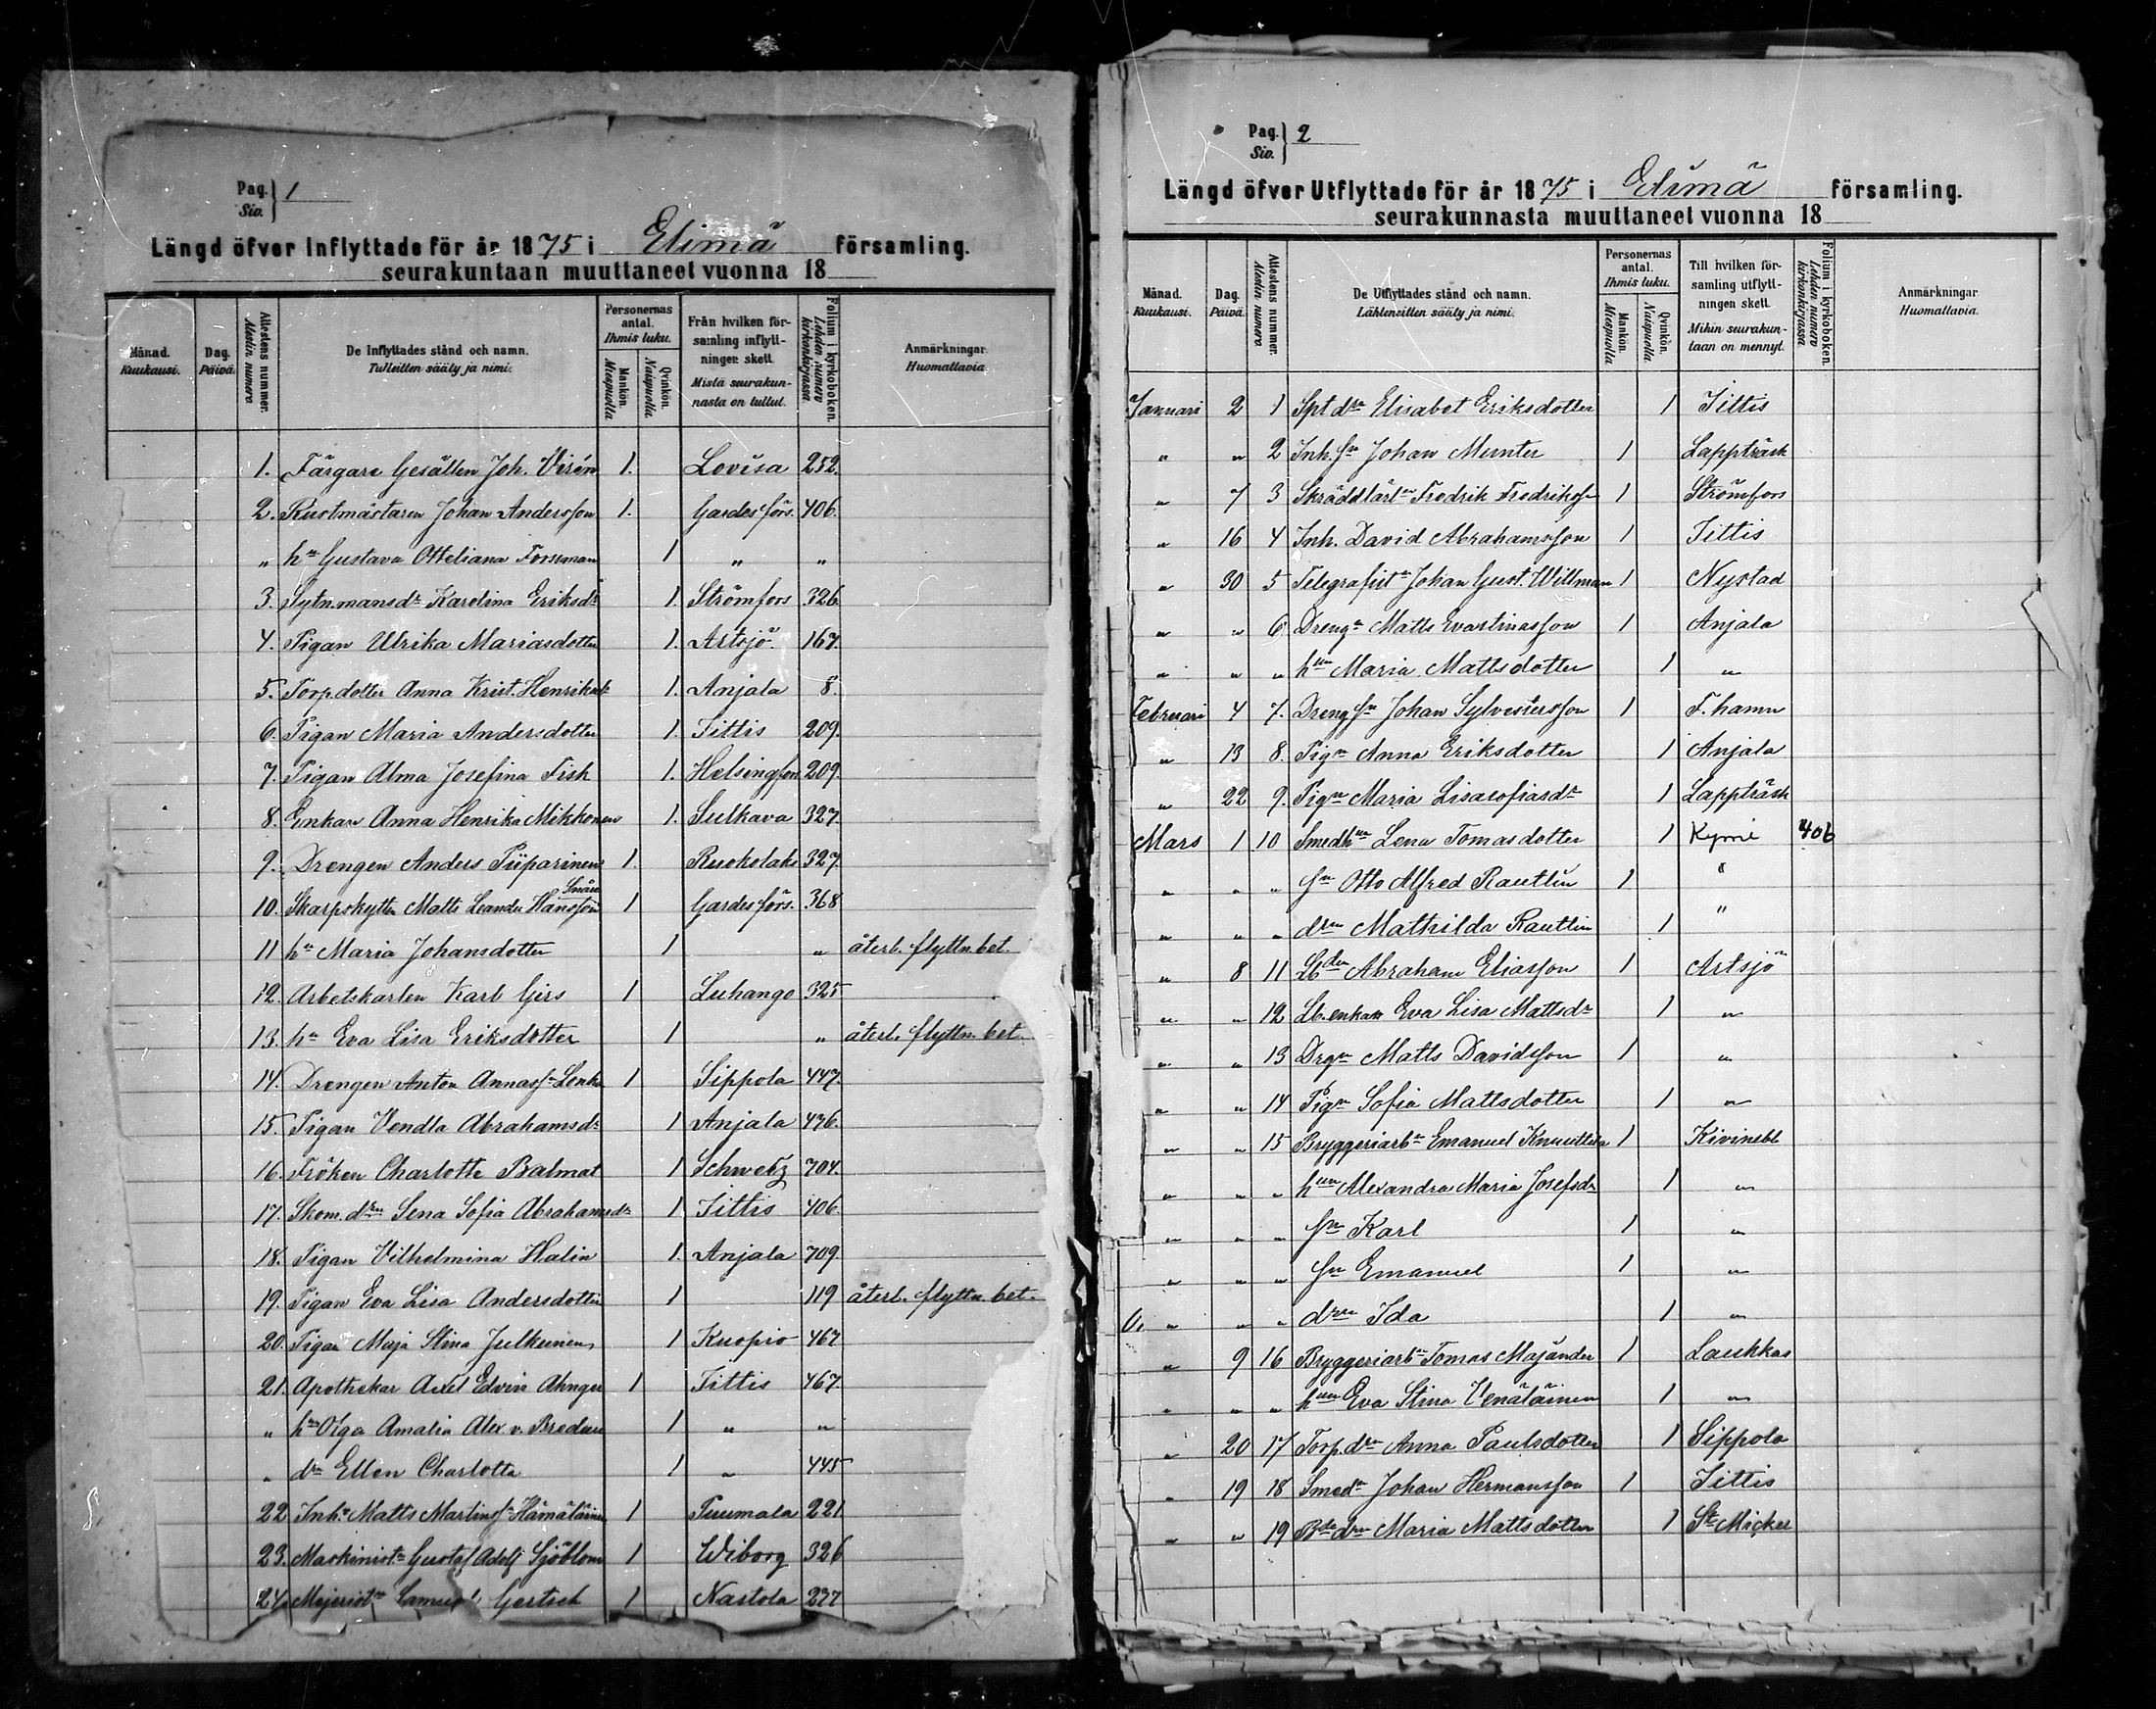 Pag. Siv. } 1
Längd öfver Inflyttade för år 1875 i Elimä församling.
seurakuntaan muuttaneet vuonna 18
Månad. Kuukausi.
Dag. Päivä.
Attestens nummer. Mestin numero.
De Inflyttades stånd och namn. Tulleitten sääty ja nimi.
Personernas antal. Ihmis luku.
Mankön. Miespuolia
Qvinkön. Naispuolia.
Från hvilken församling inflyttningen skett. Mistä seurakunnasta on tullut.
Folium i kyrkoboken. Lehden numero kirkonkirjassa.
Anmärkningar. Huomattavia
1. Färgare Gesällen Joh. Virén 1. Lovisa 252.
2. Rustmästaren Johan Andersson 1. Gardesförs. 406.
" hn Gustava Otteliana Forsman 1 " "
3. Sytn.mansdr Karolina Eriksdr 1. Strömfors 326
4. Pigan Ulrika Mariasdotter 1. Artsjö 167.
5. Torp.dotter Anna Krist. Henriksdr 1. Anjala 8.
6. Pigan Maria Andersdotter 1. Iittis 209.
7. Pigan Alma Josefina Fisk 1. Helsingfors 209.
8. Enkan Anna Henrika Mikkonen 1. Sulkava 327.
9. Drengen Anders Piiparinen 1. Ruokolaks 327.
10. Skarpskytten Matts Leander Hansson Snäre 1 Gardesförs. 368
11 hn Maria Johansdotter 1 " återl. flyttn. bet.
12. Arbetskarlen Karl Girs 1 Luhango 325
13. hn Eva Lisa Eriksdotter 1 " återl. flyttn. bet.
14. Drengen Anton Annassn Lenk 1 Sippola 447.
15. Pigan Vendla Abrahamsdr 1 Anjala 436.
16. Fröken Charlotte Balmat 1 Schweiz 704.
17. Skom. drn Lena Sofia Abrahamsdr 1 Iittis 406.
18. Pigan Vilhelmina Halin 1. Anjala 709.
19. Pigan Eva Lisa Andersdotter 1 119 återl. flyttn. bet.
20. Pigan Maja Stina Julkunen 1 Kuopio 467
21. Apothekar Axel Edvin Ahnger 1 Iittis 467.
" hun Olga Amalia Alex. v. Bredau 1 " "
" drn Ellen Charlotta 1 " 445
22 Inh.n Matts Martinssn Hämäläinen 1 Puumala 221
23. Maskinistn Gustaf Adolf Sjöblom 1 Wiborg 326
24. Mejeristn Samuel Gertsch 1 Nastola 237
Pag. Siv. } 2
Längd öfver Utflyttade för år 1875 i Elimä församling.
seurakunnasta muuttaneet vuonna 18
Månad. Kuukausi.
Dag. Päivä.
Attestens nummer. Mestin numero.
De Utflyttades stånd och namn. Lähteneitten sääty ja nimi.
Personernas antal. Ihmis luku.
Mankön. Miespuolia
Qvinkön. Naispuolia.
Till hvilken församling utflyttningen skett. Mihin seurakuntaan on mennyt.
Folium i kyrkoboken. Lehden numero kirkonkirjassa.
Anmärkningar. Huomattavia.
Januari 2 1 Spt drn Elisabet Eriksdotter 1 Iittis
" " 2 Inh. sn Johan Munter 1 Lappträsk
" 7 3 Skräddlärln Fredrik Fredriksn 1 Strömfors
" 16 4 Inh. David Abrahamsson 1 Iittis
" 30 5 Telegrafistn Johan Gust. Willman 1 Nystad
" " 6 Drengn Matts Evastinasson 1 Anjala
" " " hun Maria Mattsdotter 1 "
Februari 4 7. Dreng sn Johan Sylvestersson 1 F. hamn
" 13 8. Pign Anna Eriksdotter 1 Anjala
" 22 9. Pign Maria Lisasofiasdr 1 Lappträsk
Mars 1 10 Smedhun Lena Tomasdotter 1 Kymi 406
" " " sn Otto Alfred Rautlin 1 "
" " " drn Mathilda Rautlin 1 "
" 8 11 Lbden Abraham Eliasson 1 Artsjö
" " 12 Lb. enkan Eva Lisa Mattsdr 1 "
" " 13 Drgn Matts Davidsson 1 "
" " 14 Pign Sofia Mattsdotter 1 "
" " 15 Bryggeriarbn Emanuel Knuuttila 1 Kivinebb
" " " hun Alexandra Maria Josefsdr 1 "
" " " sn Karl 1 "
" " " sn Emanuel 1 "
" " " drn Ida 1 "
" 9 16 Bryggeriarbn Tomas Majander 1 Lauhkas
" " " hun Eva Stina Venäläinen 1 "
" 20 17 Torp. drn Anna Paulsdotter 1 Sippola
" 19 18 Smedn Johan Hermansson 1 Iittis
" " 19 Bde drn Maria Mattsdotter 1 St Mickel